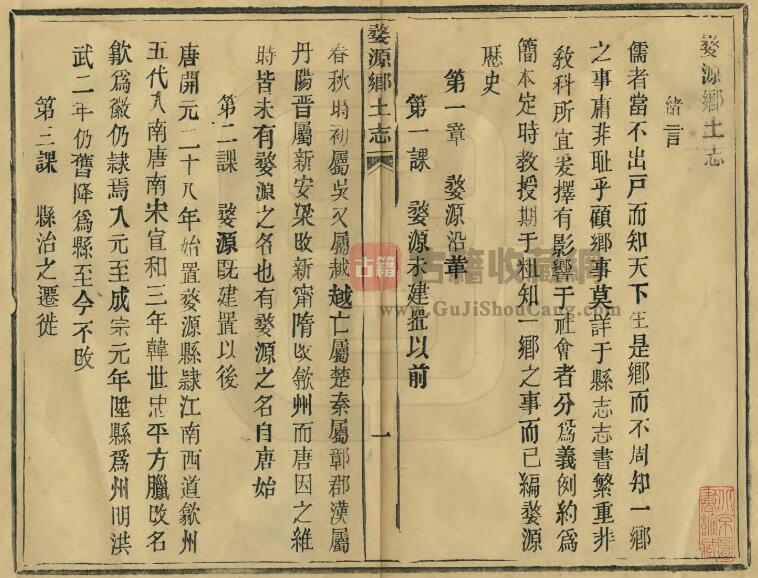 婺源鄉土志
緒言
儒者當不出戶而知天下生是鄉而不周知一鄉
之事庸非耻乎顧鄉事莫詳于縣志志書繁重非
敎科所宜爰擇有影響于社會者分爲義例約爲
簡本定時敎授期于粗知一鄉之事而已編婺源
歷史
第一章 婺源沿革
第一課 婺源未建置以前
婺源鄉土志
一
春秋時初屬吳又屬越越亡屬楚秦屬鄣郡漢屬
丹陽晋屬新安梁改新甯隋改歙州而唐因之維
時皆未有婺源之名也有婺源之名自唐始
第二課 婺源旣建置以後
唐開元二十八年始置婺源縣隷江南西道歙州
五代入南唐南宋宣和三年韓世忠平方臘改名
歙爲徽仍隷焉入元至成宗元年陞縣爲州明洪
武二年仍舊降爲縣至今不改
第三課 縣治之遷徙
古籍
古籍收藏网
www.GuJiShouCang.com